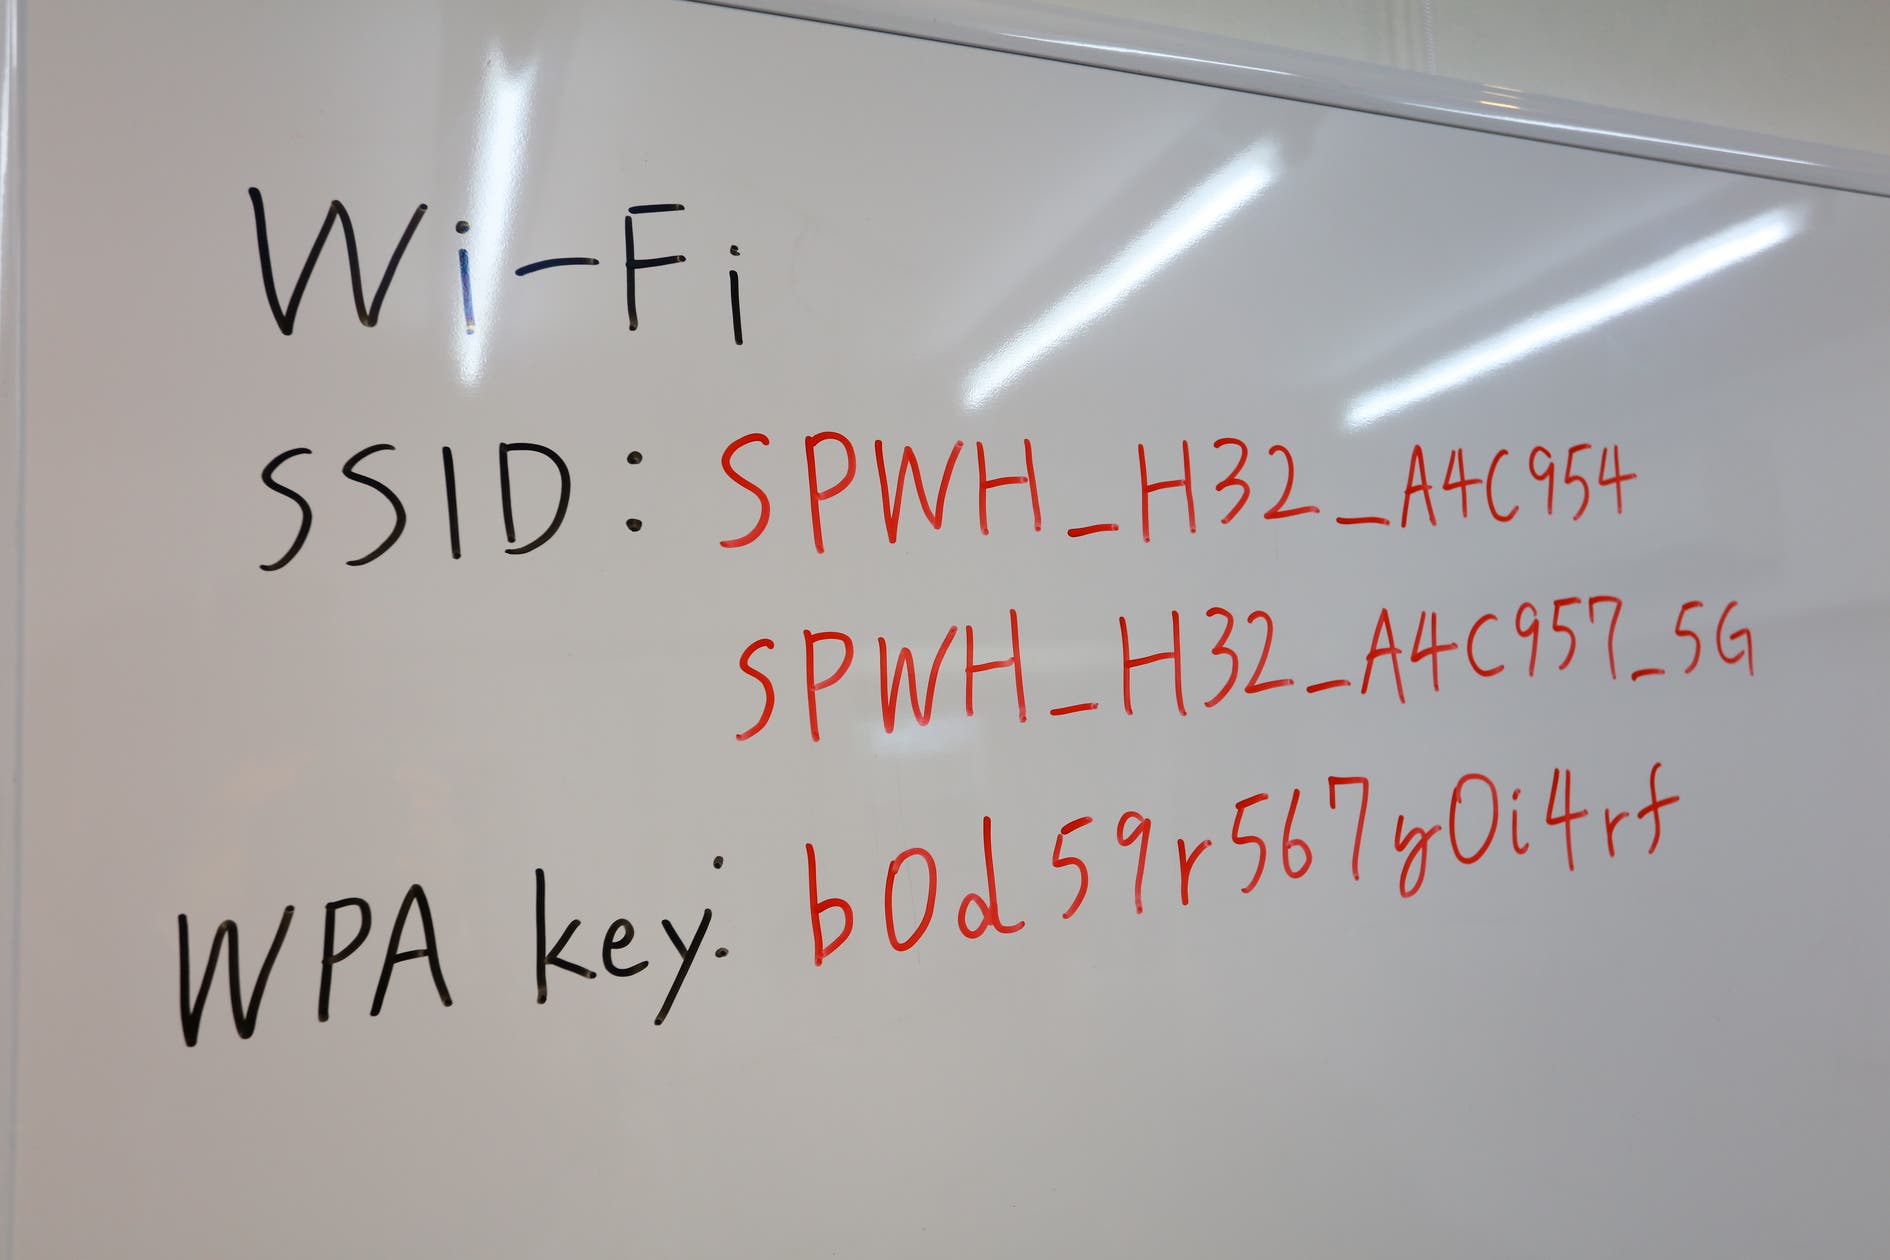 Wi-Fi
SSID: SPWH_H32_A4C954
SPWH_H32_A4C957_5G
WPA key: b0d59r567y0i4rf